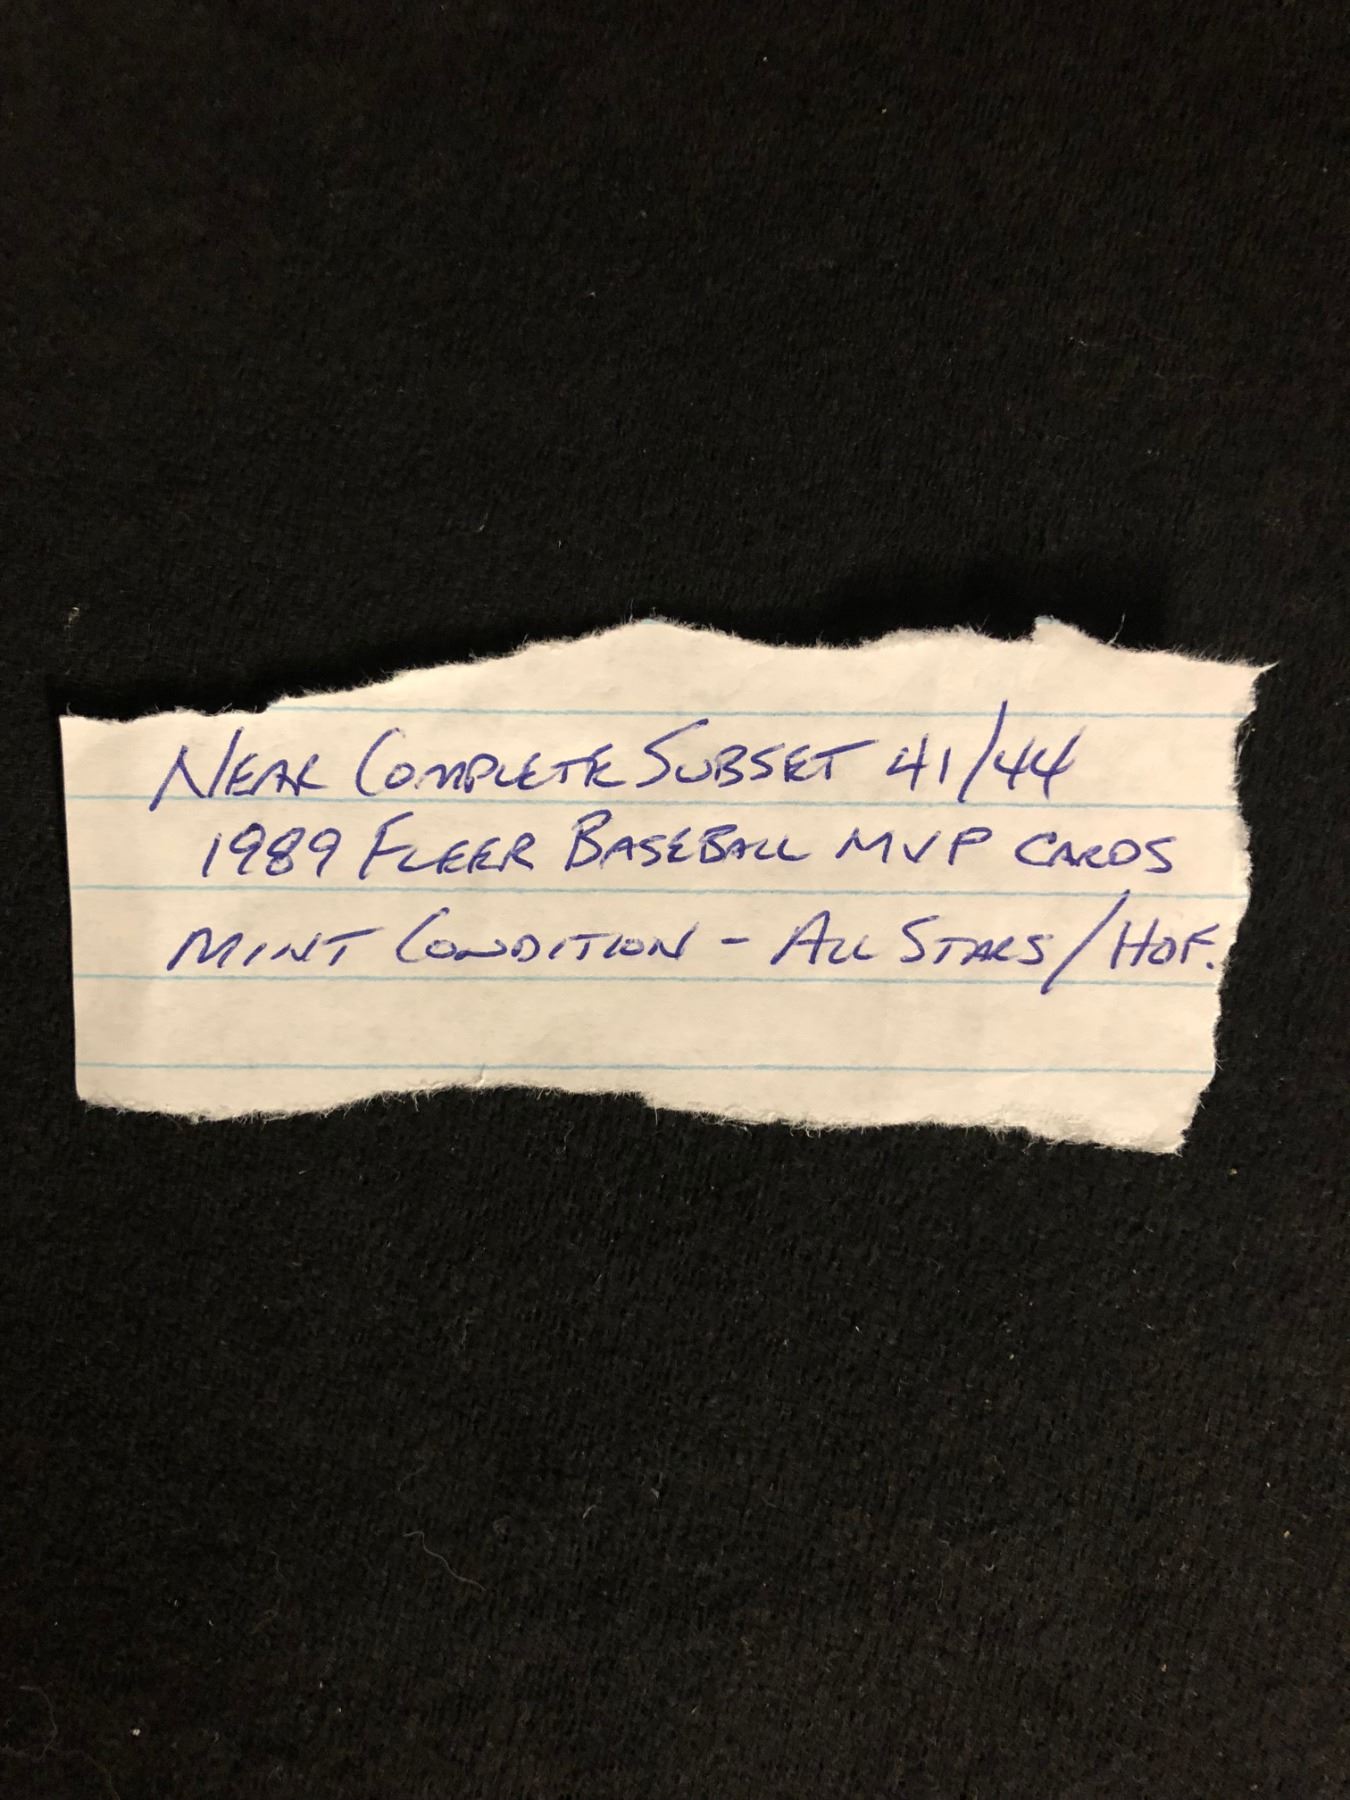 NEAR COMPLETE SUBSET 41/44
1989 FLEER BASEBALL MVP CARDS
MINT CONDITION - ALL STARS/HOF.